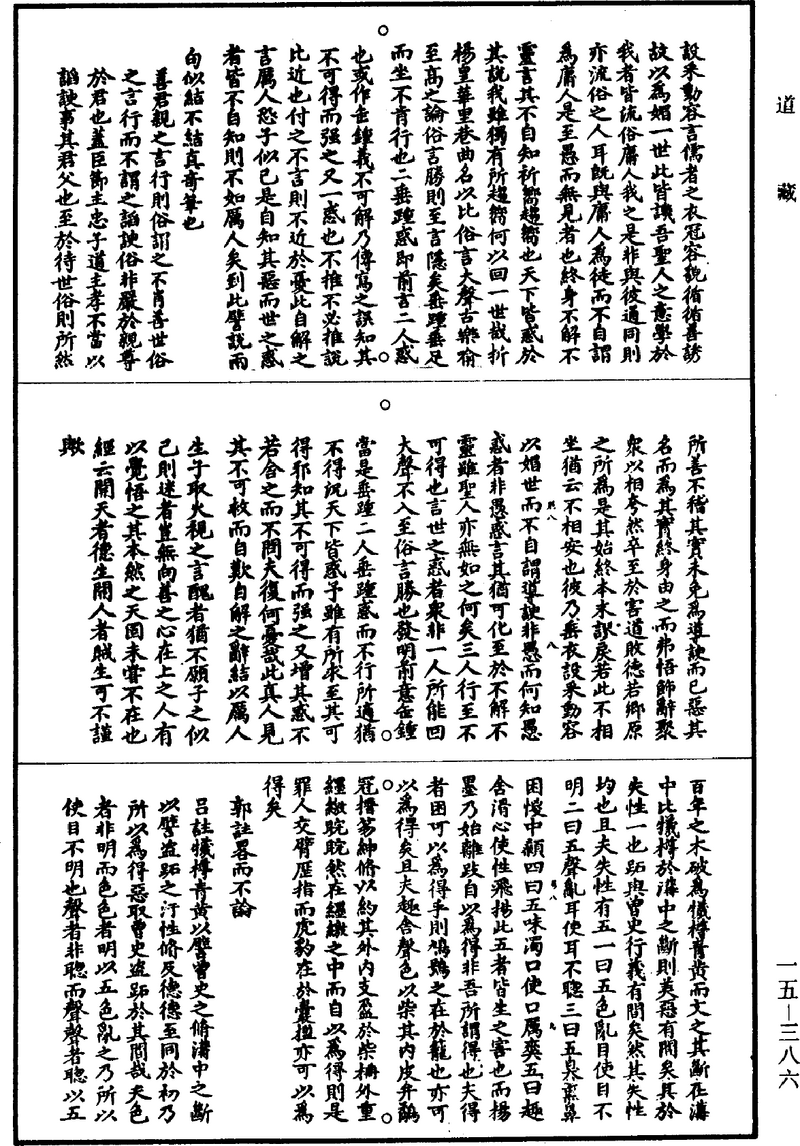 道藏
設采動容言儒者之衣冠容貌循循善誘
故以為媚一世此皆讓吾聖人之意學於
我者皆流俗庸人我之是非與彼通同則
亦流俗之人耳既與庸人為徒而不自謂
為庸人是至愚而無見者也終身不解不
靈言其不自知祈嚮趨嚮也天下皆惑於
其說我雖獨有所趨嚮何以回一世哉折
楊皇華里巷曲名以比俗言大聲古樂喻
至高之論俗言勝則至言隱矣垂踵垂足
而坐不肯行也二垂踵惑即前言二人惑
也或作缶鍾義不可解乃傳寫之誤知其
不可得而强之又一惑也不推不必推說
比近也付之不言則不近於憂此自解之
言厲人恐子似已是自知其惡而世之惑
者皆不自知則不如厲人矣到此譬說兩
句似結不結真奇筆也
善君親之言行則俗謂之不肖善世俗
之言行而不謂之諂諛俗非嚴於親尊
於君也蓋臣節主忠子道主孝不當以
諂諛事其君父也至於待世俗則所然
所善不稽其實未免為導諛而已惡其
名而為其實終身由之而弗悟飾辭聚
衆以相夸然卒至於害道敗德若鄉原
之所為是其始終本末訳戾若此不相
坐猶云不相安也彼乃垂衣設采動容
以媚世而不自謂導諛非愚而何知愚
惑者非愚惑言其猶可化至於不解不
靈雖聖人亦無如之何矣三人行至不
可得也言世之惑者衆非一人所能回
大聲不入至俗言勝也發明前意缶鍾
當是垂踵二人垂踵惑而不行所適猶
不得況天下皆惑予雖有所求至其可
得邪知其不可得而强之又增其惑不
若舍之而不問夫復何憂哉此真人見
其不可救而自歎自解之辭結以厲人
生子取火視之言醜者猶不願子之似
己則迷者豈無向善之心在上之人有
以覺悟之其本然之天固未嘗不在也
經云開天者德生開人者賊生可不謹
歟
百年之木破為犧樽青黄而文之其斷在溝
中比犧樽於溝中之斷則美惡有間矣其於
失性一也跖與曾史行義有間矣然其失性
均也且夫失性有五一曰五色亂目使目不
明二曰五聲亂耳使耳不聰三曰五臭熏鼻
困惾中顙四曰五味濁口使口厲爽五曰趣
舍滑心使性飛揚此五者皆生之害也而楊
墨乃始離跂自以為得非吾所謂得也夫得
者困可以為得乎則鳩鴞之在於籠也亦可
以為得矣且夫趣舍聲色以柴其内皮弁鷸
冠搢笏紳修以約其外内支盈於柴柵外重
纆繳睆睆然在纆繳之中而自以為得則是
罪人交臂歷指而虎豹在於囊檻亦可以為
得矣
郭註畧而不論
吕註犧樽青黄以譬曾史之脩溝中之斷
以譬盗跖之汙性脩反德德至同於初乃
所以為得惡取曾史盗跖於其間哉夫色
者非明而色色者明以五色亂之乃所以
使目不明也聲者非聰而聲聲者聰以五
一五—三八六